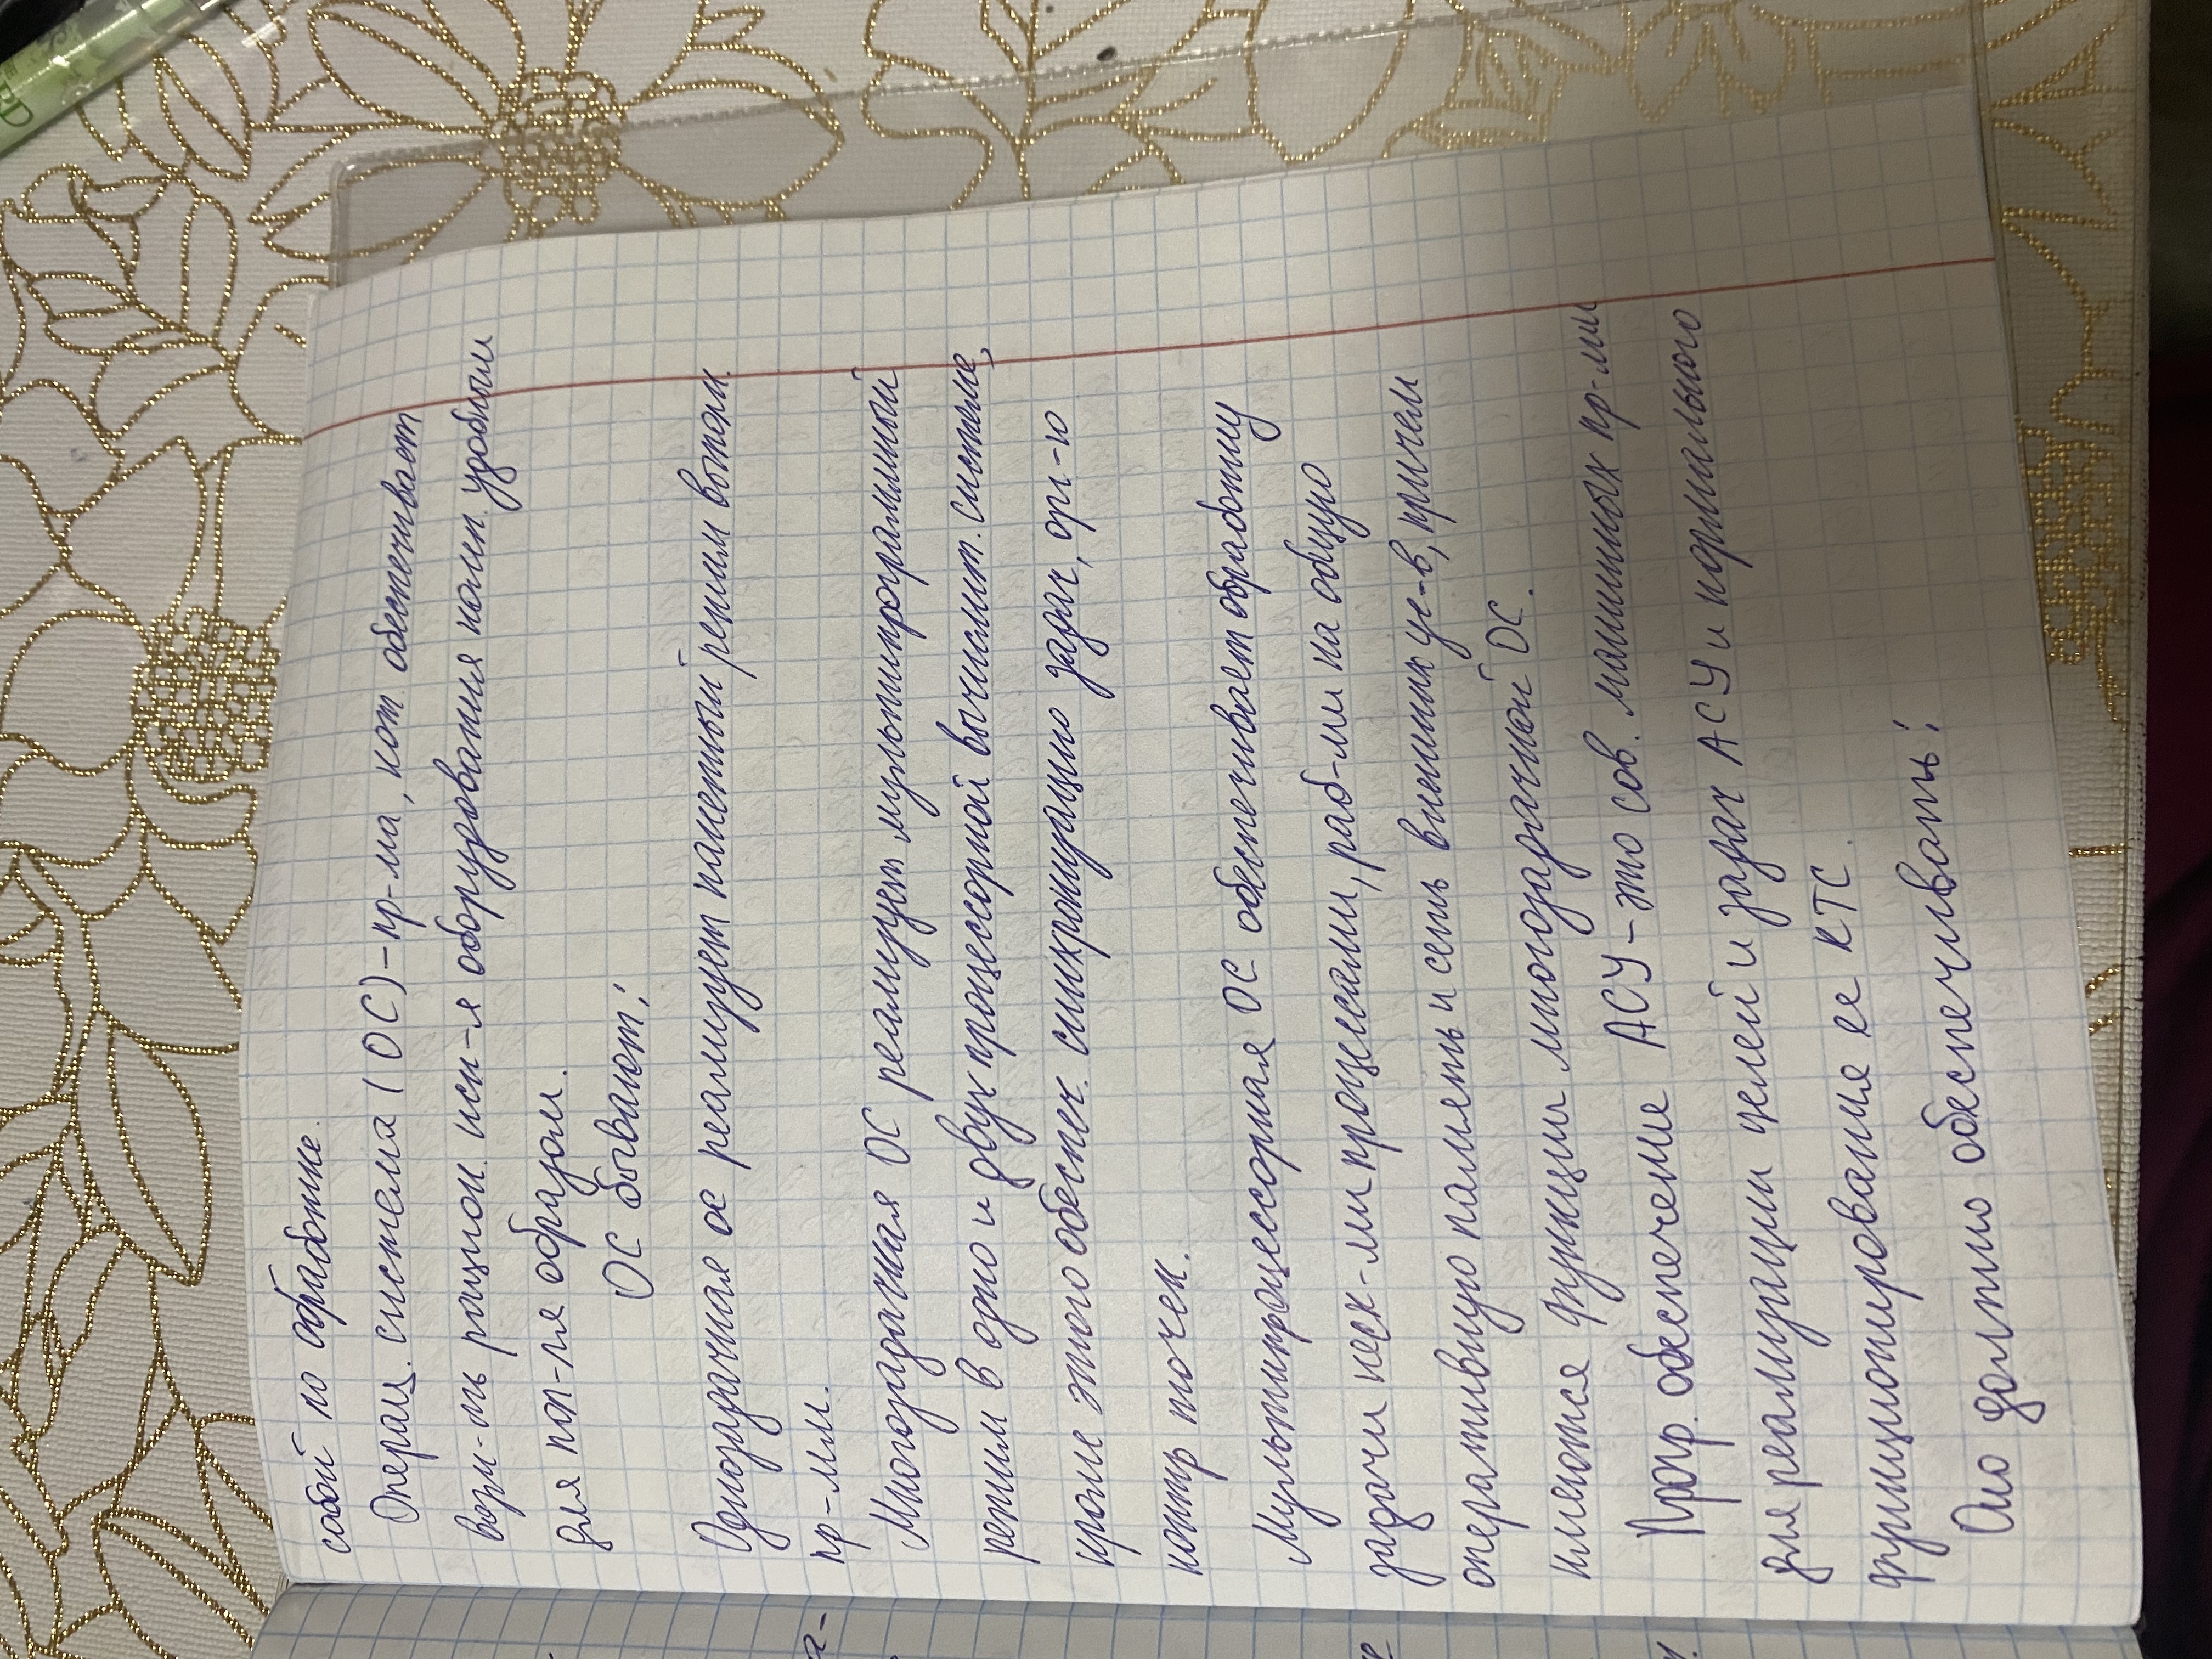 собой по обработке.
Операц. система (ОС) – пр-ма, кот обеспечивает
возм-ть рацион. исп-я оборудования комп. удобным
для пол-ля образом.
ОС бывают:
Однозадачная ос реализует пакетный режим выполн.
пр-мм.
Многозадачная ОС реализует мультипрограммный
режим в одно и двух процессорной вычислит. системе,
кроме этого обеспеч. синхронизацию задач, орг-ю
контр точек.
Мультипроцессорная ОС обеспечивает обработку
задачи неск-ми процессами, раб-ми на общую
оперативную память и сеть внешних ус-в, причем
имеются функции многозадачной ОС.
Прогр. обеспечение АСУ – это сов. машинных пр-мм
для реализации целей и задач АСУ и нормального
функционирования ее КТС.
Оно должно обеспечивать: